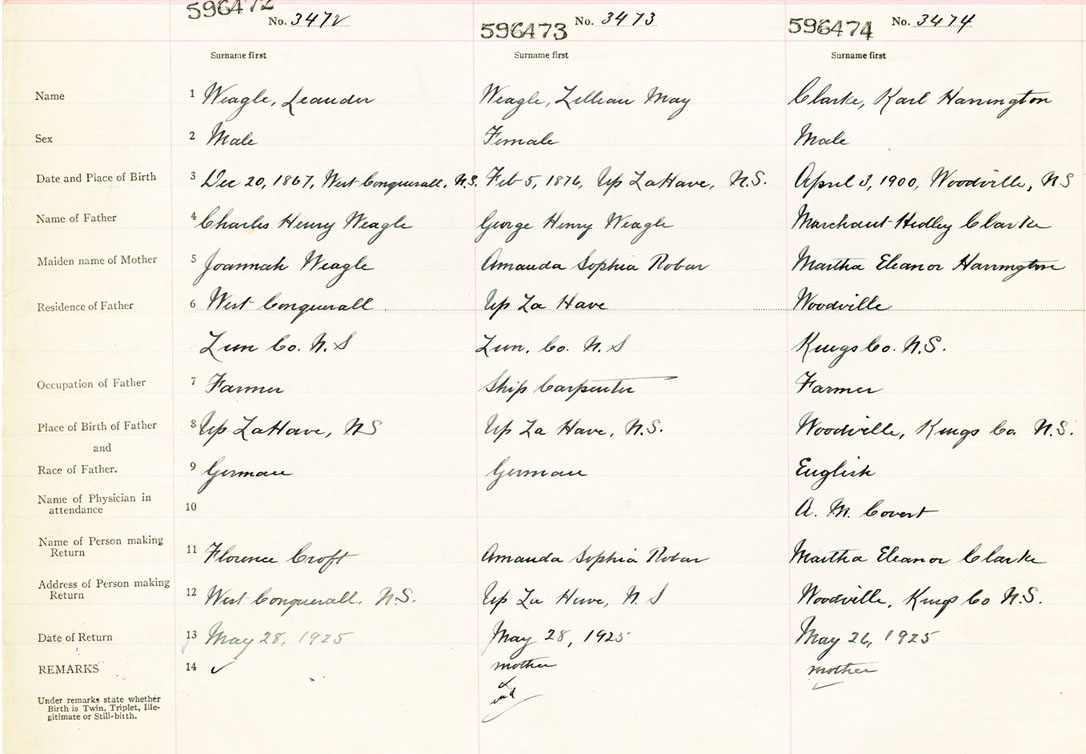 596472 No. 3472 596473 No. 3473 596474 No. 3474
Surname first Surname first Surname first
Name 1 Weagle, Leander Weagle, Lillian May Clarke, Karl Harrington
Sex 2 Male Female Male
Date and Place of Birth 3 Dec 20, 1867, West Conquerall, N.S. Feb 5, 1876, Up LaHave, N.S. April 3, 1900, Woodville, NS
Name of Father 4 Charles Henry Weagle George Henry Weagle Marchant Hedley Clarke
Maiden name of Mother 5 Joannah Weagle Amanda Sophia Robar Martha Eleanor Harrington
Residence of Father 6 West Conquerall Up La Have Woodville
Lun Co. N.S Lun. Co. N.S Kings Co. N.S.
Occupation of Father 7 Farmer Ship Carpenter Farmer
Place of Birth of Father 8 Up LaHave, NS Up La Have, N.S. Woodville, Kings Co. N.S.
and
Race of Father. 9 German German English
Name of Physician in
attendance 10 A. M. Covert
Name of Person making
Return 11 Florence Croft Amanda Sophia Robar Martha Eleanor Clarke
Address of Person making
Return 12 West Conquerall, N.S. Up La Have, N.S Woodville, Kings Co N.S.
Date of Return 13 May 28, 1925 May 28, 1925 May 26, 1925
REMARKS 14 ✓ mother mother
Under remarks state whether
Birth is Twin, Triplet, Ille-
gitimate or Still-birth.